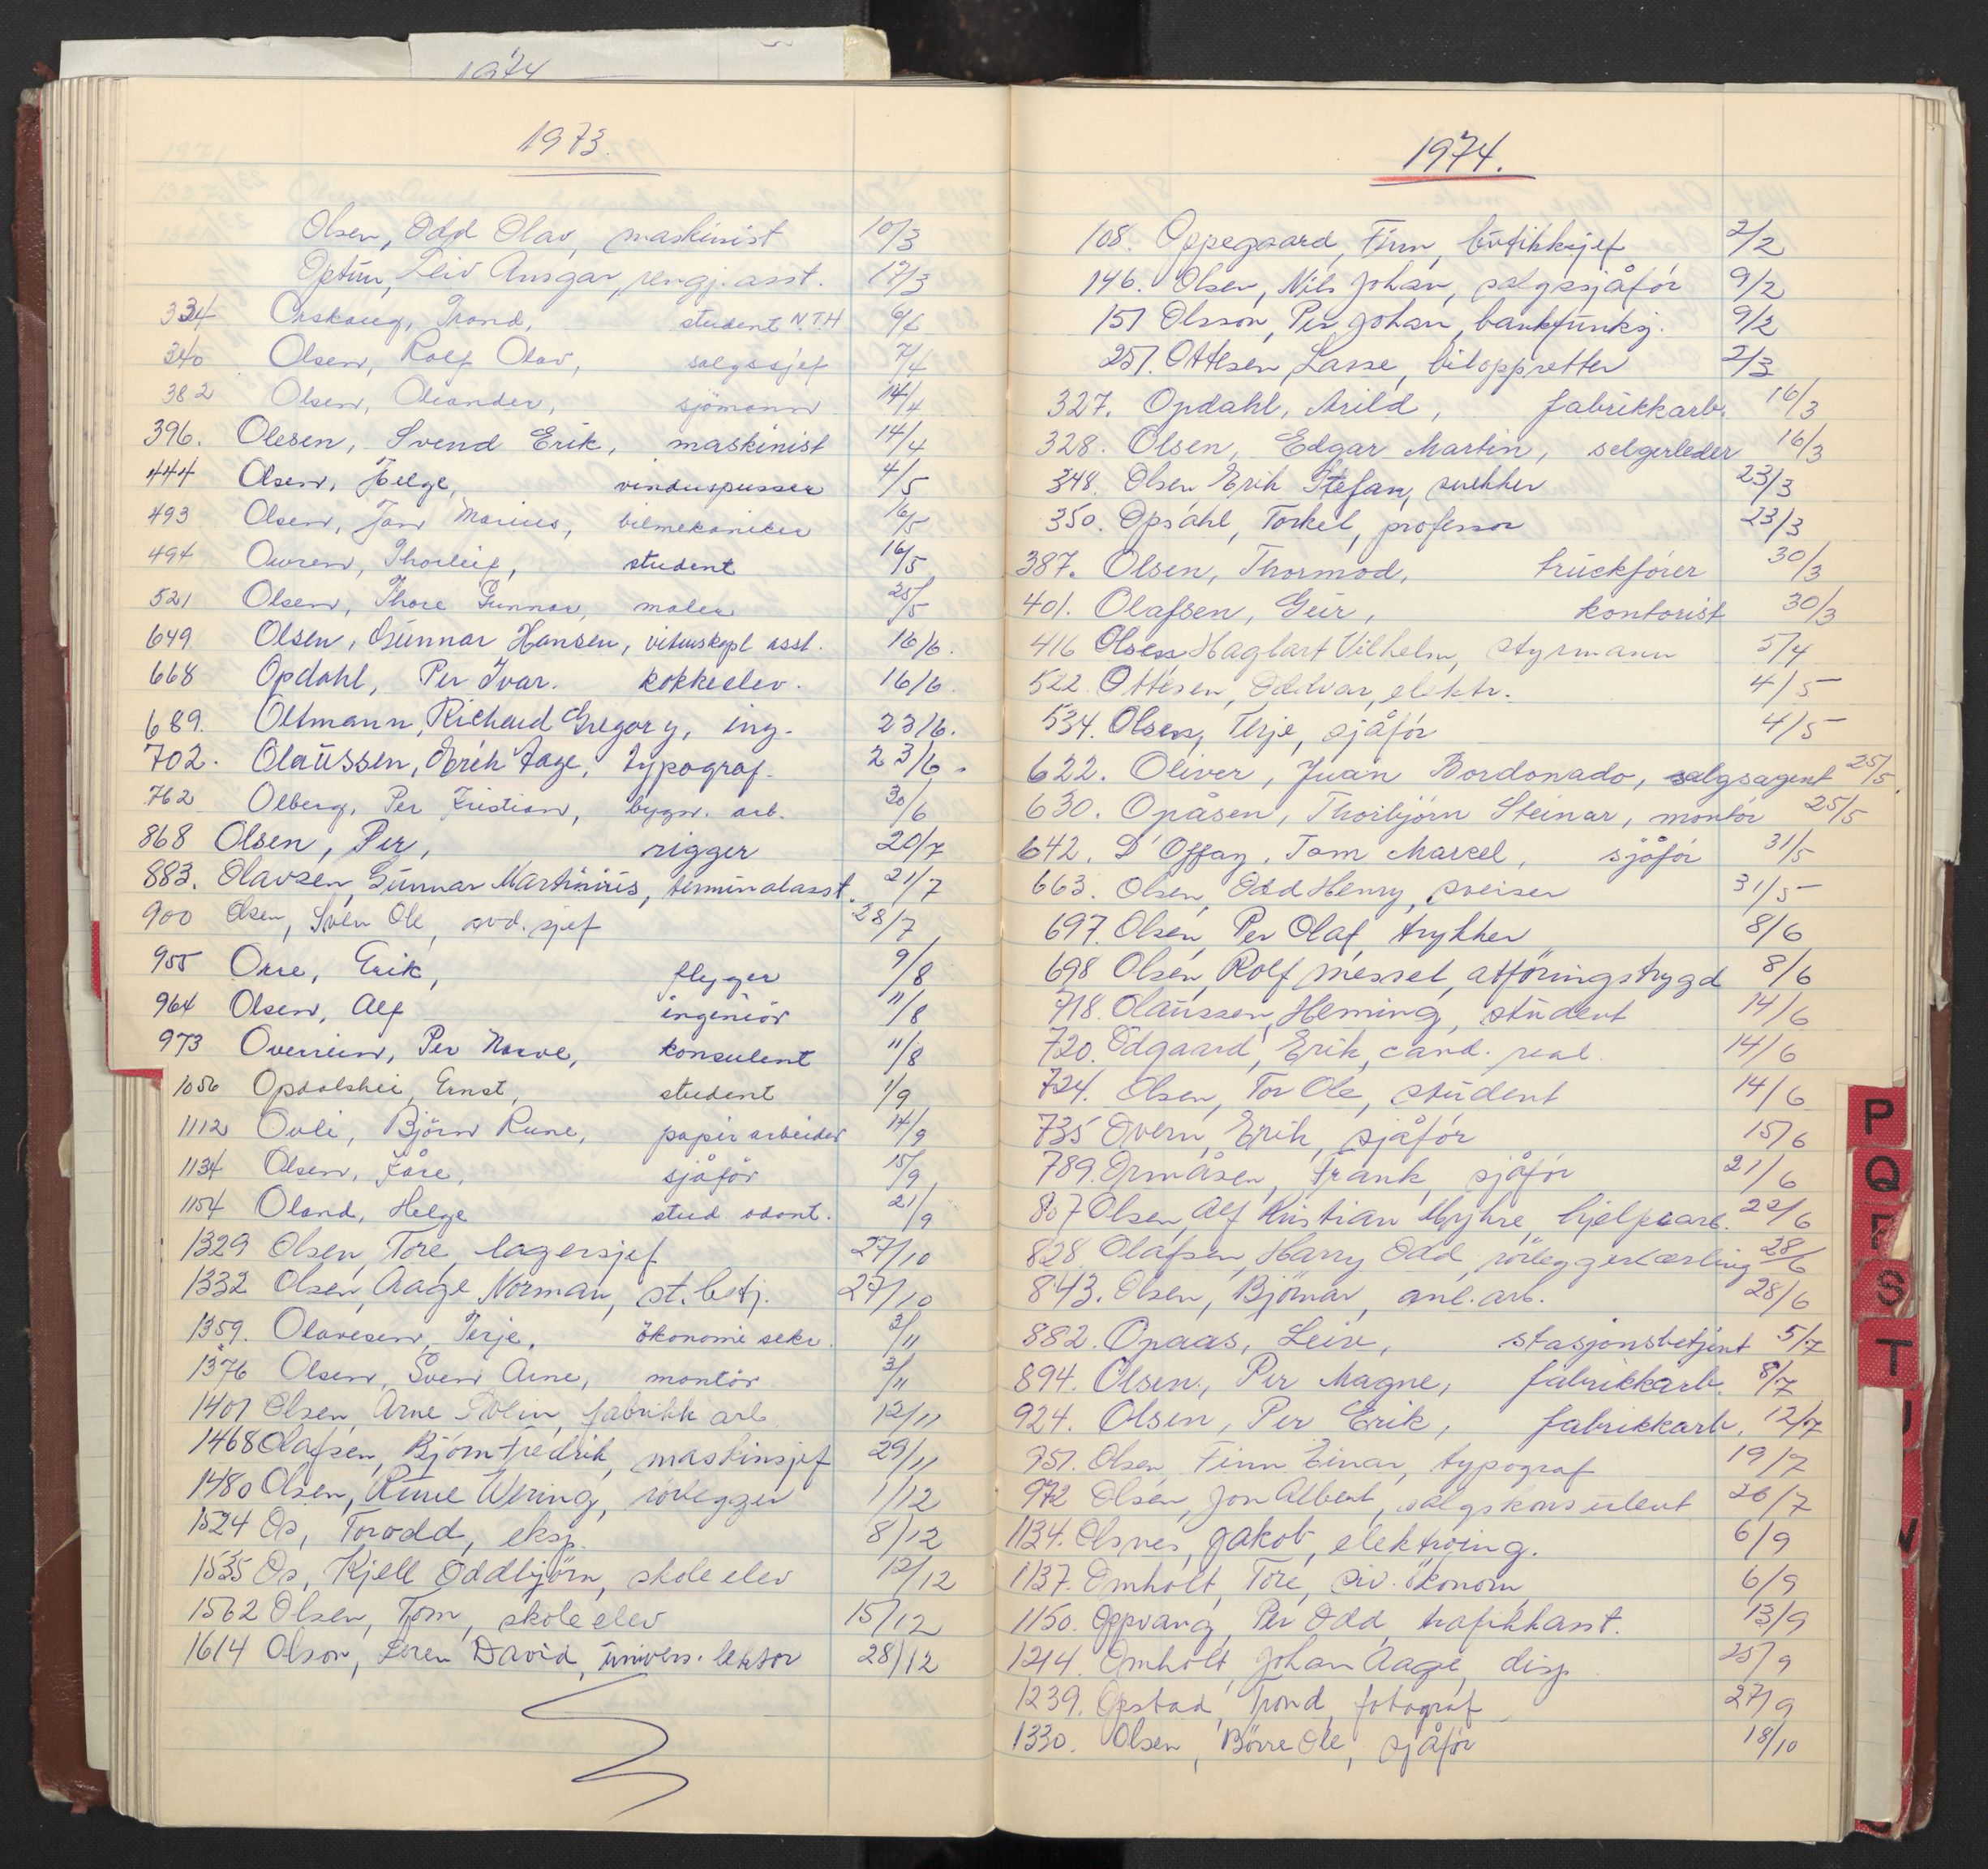 1974
1973.
Olsen, Odd Olav, maskinist 10/3
Optun, Leiv Ansgar, rengj. asst. 17/3
334 Orskaug, Trond, student N.T.H 9/4
340 Olsen, Rolf Olav, salgssjef 7/4
382 Olsen, Oleander, sjömann 14/4
396. Olesen, Svend Erik, maskinist 14/4
444 Olsen, Helge, vinduspusser 4/5
493 Olsen, Jan Marius, bilmekaniker 16/5
494 Ouren, Thorleif, student 16/5
521 Olsen, Thore Gunnar, maler 25/5
649. Olsen, Gunnar Hansen, asst. 16/6.
668 Opdahl, Per Ivar. kokkeelev. 16/6.
689. Oltmann, Richard Gregory, ing. 23/6.
702. Olaussen, Erik Aage, typograf. 23/6.
762 Olberg, Per Kristian, bygn. arb. 30/6
868 Olsen, Per, rigger 20/7
883. Olavsen, Gunnar Martinius, terminalasst. 21/7
900 Olsen, Sven Ole, avd. sjef 28/7
955 Orre, Erik, flyger 9/8
964 Olsen, Alf ingeniör 11/8
973 Overrein, Per Norve, konsulent 11/8
1056 Opdalshei, Ernst, student 1/9
1112 Ovli, Björn Rune, papirarbeider 14/9
1134 Olsen, Kåre, sjåför 15/9
1154 Oland, Helge stud odont. 21/9
1329 Olsen, Tore, lagersjef 27/10
1332 Olsen, Aage Norman, st. betj. 27/10
1359. Olavesen, Terje, økonomisekr. 3/11
1376 Olsen, Sven Arne, montör 3/11
1401 Olsen, Arne fabrikk arb. 12/11
1468 Olafsen, Bjørn Fredrik, maskinsjef 29/11
1480 Olsen, Rune Wering, rörlegger 1/12
1524 Os, Torodd, eksp. 8/12
1535 Os, Kjell Oddbjörn, skoleelev 12/12
1562 Olsen, Tom, skoleelev 15/12
1614 Olson, Loren David, univers. lektor 28/12
1974.
108. Oppegaard, Finn, butikksjef 2/2
146. Olsen, Nils Johan, salgssjåför 9/2
151 Olsson, Per Johan, bankfunksj. 9/2
251. Ottesen, Lasse, biloppretter 2/3
327. Opdahl, Arild, fabrikkarb. 16/3
328. Olsen, Edgar Martin, selgerleder 16/3
348. Olsen Erik Stefan, snekker 23/3
350. Opsahl, Torkel, professor 23/3
387. Olsen, Thormod, truckförer 30/3
401. Olafsen, Geir, kontorist 30/3
416 Olsen Haglart Vilhelm, styrmann 5/4
522. Ottesen, Oddvar, elektr. 4/5
534. Olsen, Terje, sjåför 4/5
622. Oliver, Juan Bordonado, salgsagent 25/5.
630. Opåsen, Thorbjörn Steinar, montör 25/5
642. D'Offay, Tom Marcel, sjåför 31/5
663. Olsen, Odd Henry, sveiser 31/5
697. Olsen, Per Olaf, trykker 8/6
698 Olsen, Rolf Messel, attføringstrygd 8/6
718. Olaussen, Heming, student 14/6
720. Odgaard, Erik, cand. real. 14/6
724. Olsen, Tor Ole, student 14/6
735 Overn, Erik, sjåför 15/6
789. Ormåsen, Frank, sjåför 21/6
807 Olsen, Alf Kristian Myhre, hjelpearb. 22/6
828. Olafsen, Harry Odd, rörleggerlærling 28/6
843. Olsen, Björnar, anl. arb. 28/6
882. Opaas, Leiv, stasjonsbetjent 5/7
894. Olsen, Per Magne, fabrikkarb. 8/7
924. Olsen, Per Erik, fabrikkarb. 12/7
951. Olsen, Finn Einar, typograf 19/7
972 Olsen, Jon Albert, salgskonsulent 26/7
1134. Olsnes, Jakob, elektroing. 6/9
1137. Omholt, Tore, siv. økonom 6/9
1150. Oppvang, Per Odd, trafikkasst. 13/9
1214. Omholt, Johan Aage, disp. 25/9
1239. Opstad, Trond, fotograf 27/9
1330. Olsen, Børre Ole, sjåför 18/10
P
Q
S
T